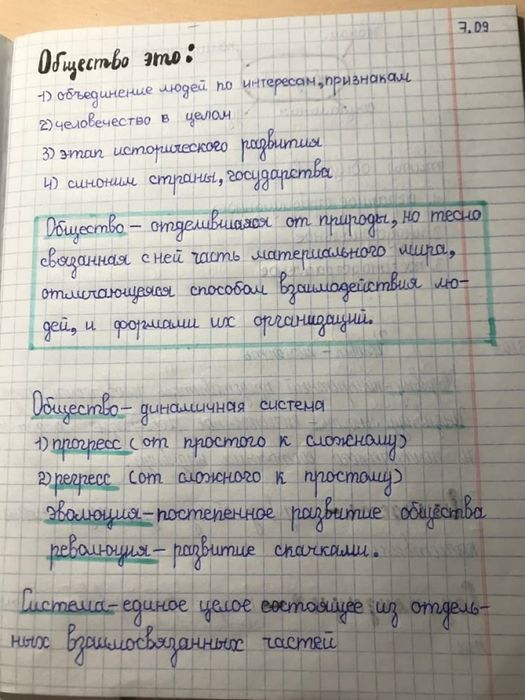 7.09
Общество это:
1) объединение людей по интересам, признакам
2) человечество в целом
3) этап исторического развития
4) синоним страны, государства
Общество – отделившаяся от природы, но тесно
связанная с ней часть материального мира,
отличающеяся способом взаимодействия лю-
дей, и формами их организаций.
Общество – динамичная система
1) прогресс (от простого к сложному)
2) регресс (от сложного к простому)
эволюция – постепенное развитие общества
революция – развитие скачками.
Система – единое целое состоящее из отдель-
ных взаимосвязанных частей